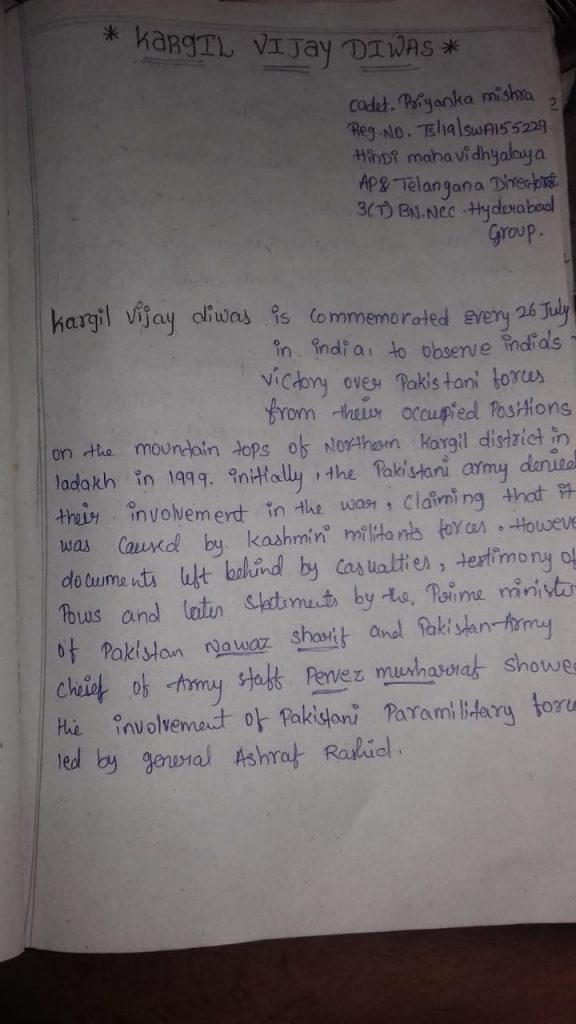 * KARGIL VIJAY DIWAS *
Cadet. Priyanka mishra
Reg.NO. TS/19/SWA155229
Hindi mahavidhyalaya
AP& Telangana Directorat
3(T) BN.NCC - Hyderabad
Group.
kargil vijay diwas is Commemorated Every 26 July
in india, to observe india's
victory over Pakistani forces
from their occupied Positions
on the mountain tops of Northern Kargil district in
ladakh in 1999. initially, the Pakistani army denied
their involvement in the war, claiming that it
was caused by kashmiri militants forces. Howeve
documents left behind by casualties, testimony of
Pows and later Statements by the, Prime ministe
of Pakistan Nawaz sharif and Pakistan-Army
cheief of Army staff Pervez musharraf showe
the involvement of Pakistani Paramilitary force
led by general Ashraf Rashid.